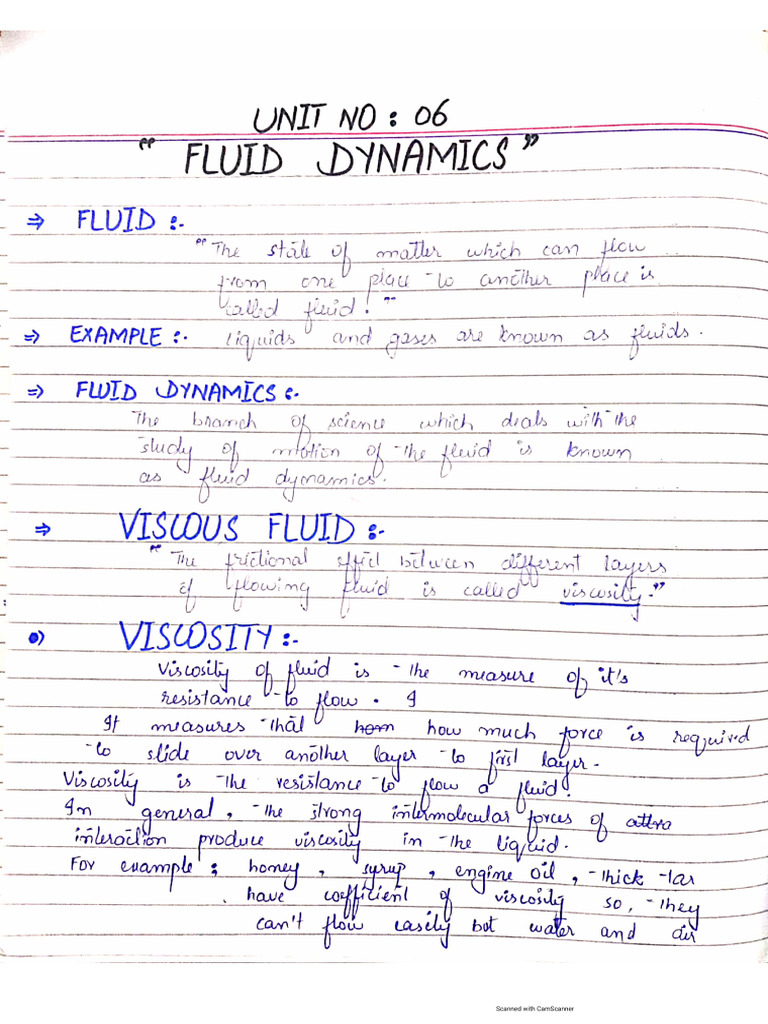 UNIT NO : 06
" FLUID DYNAMICS "
⇒ FLUID :-
"The state of matter which can flow
from one place to another place is
called fluid."
⇒ EXAMPLE :- liquids and gases are known as fluids.
⇒ FLUID DYNAMICS :-
The branch of science which deals with the
study of motion of the fluid is known
as fluid dynamics.
⇒ VISCOUS FLUID :-
"The frictional effict between different layers
of flowing fluid is called viscosity."
•) VISCOSITY :-
Viscosity of fluid is the measure of it's
resistance to flow. I
It measures that hom how much force is required
to slide over another layer to first layer.
Viscosity is the resistance to flow a fluid.
In general, the strong intermolecular forces of attra
interaction produce viscosity in the liquid.
For example ; honey , syrup , engine oil , thick tar
have coefficient of viscosity so, they
can't flow easily but water and air
Scanned with CamScanner